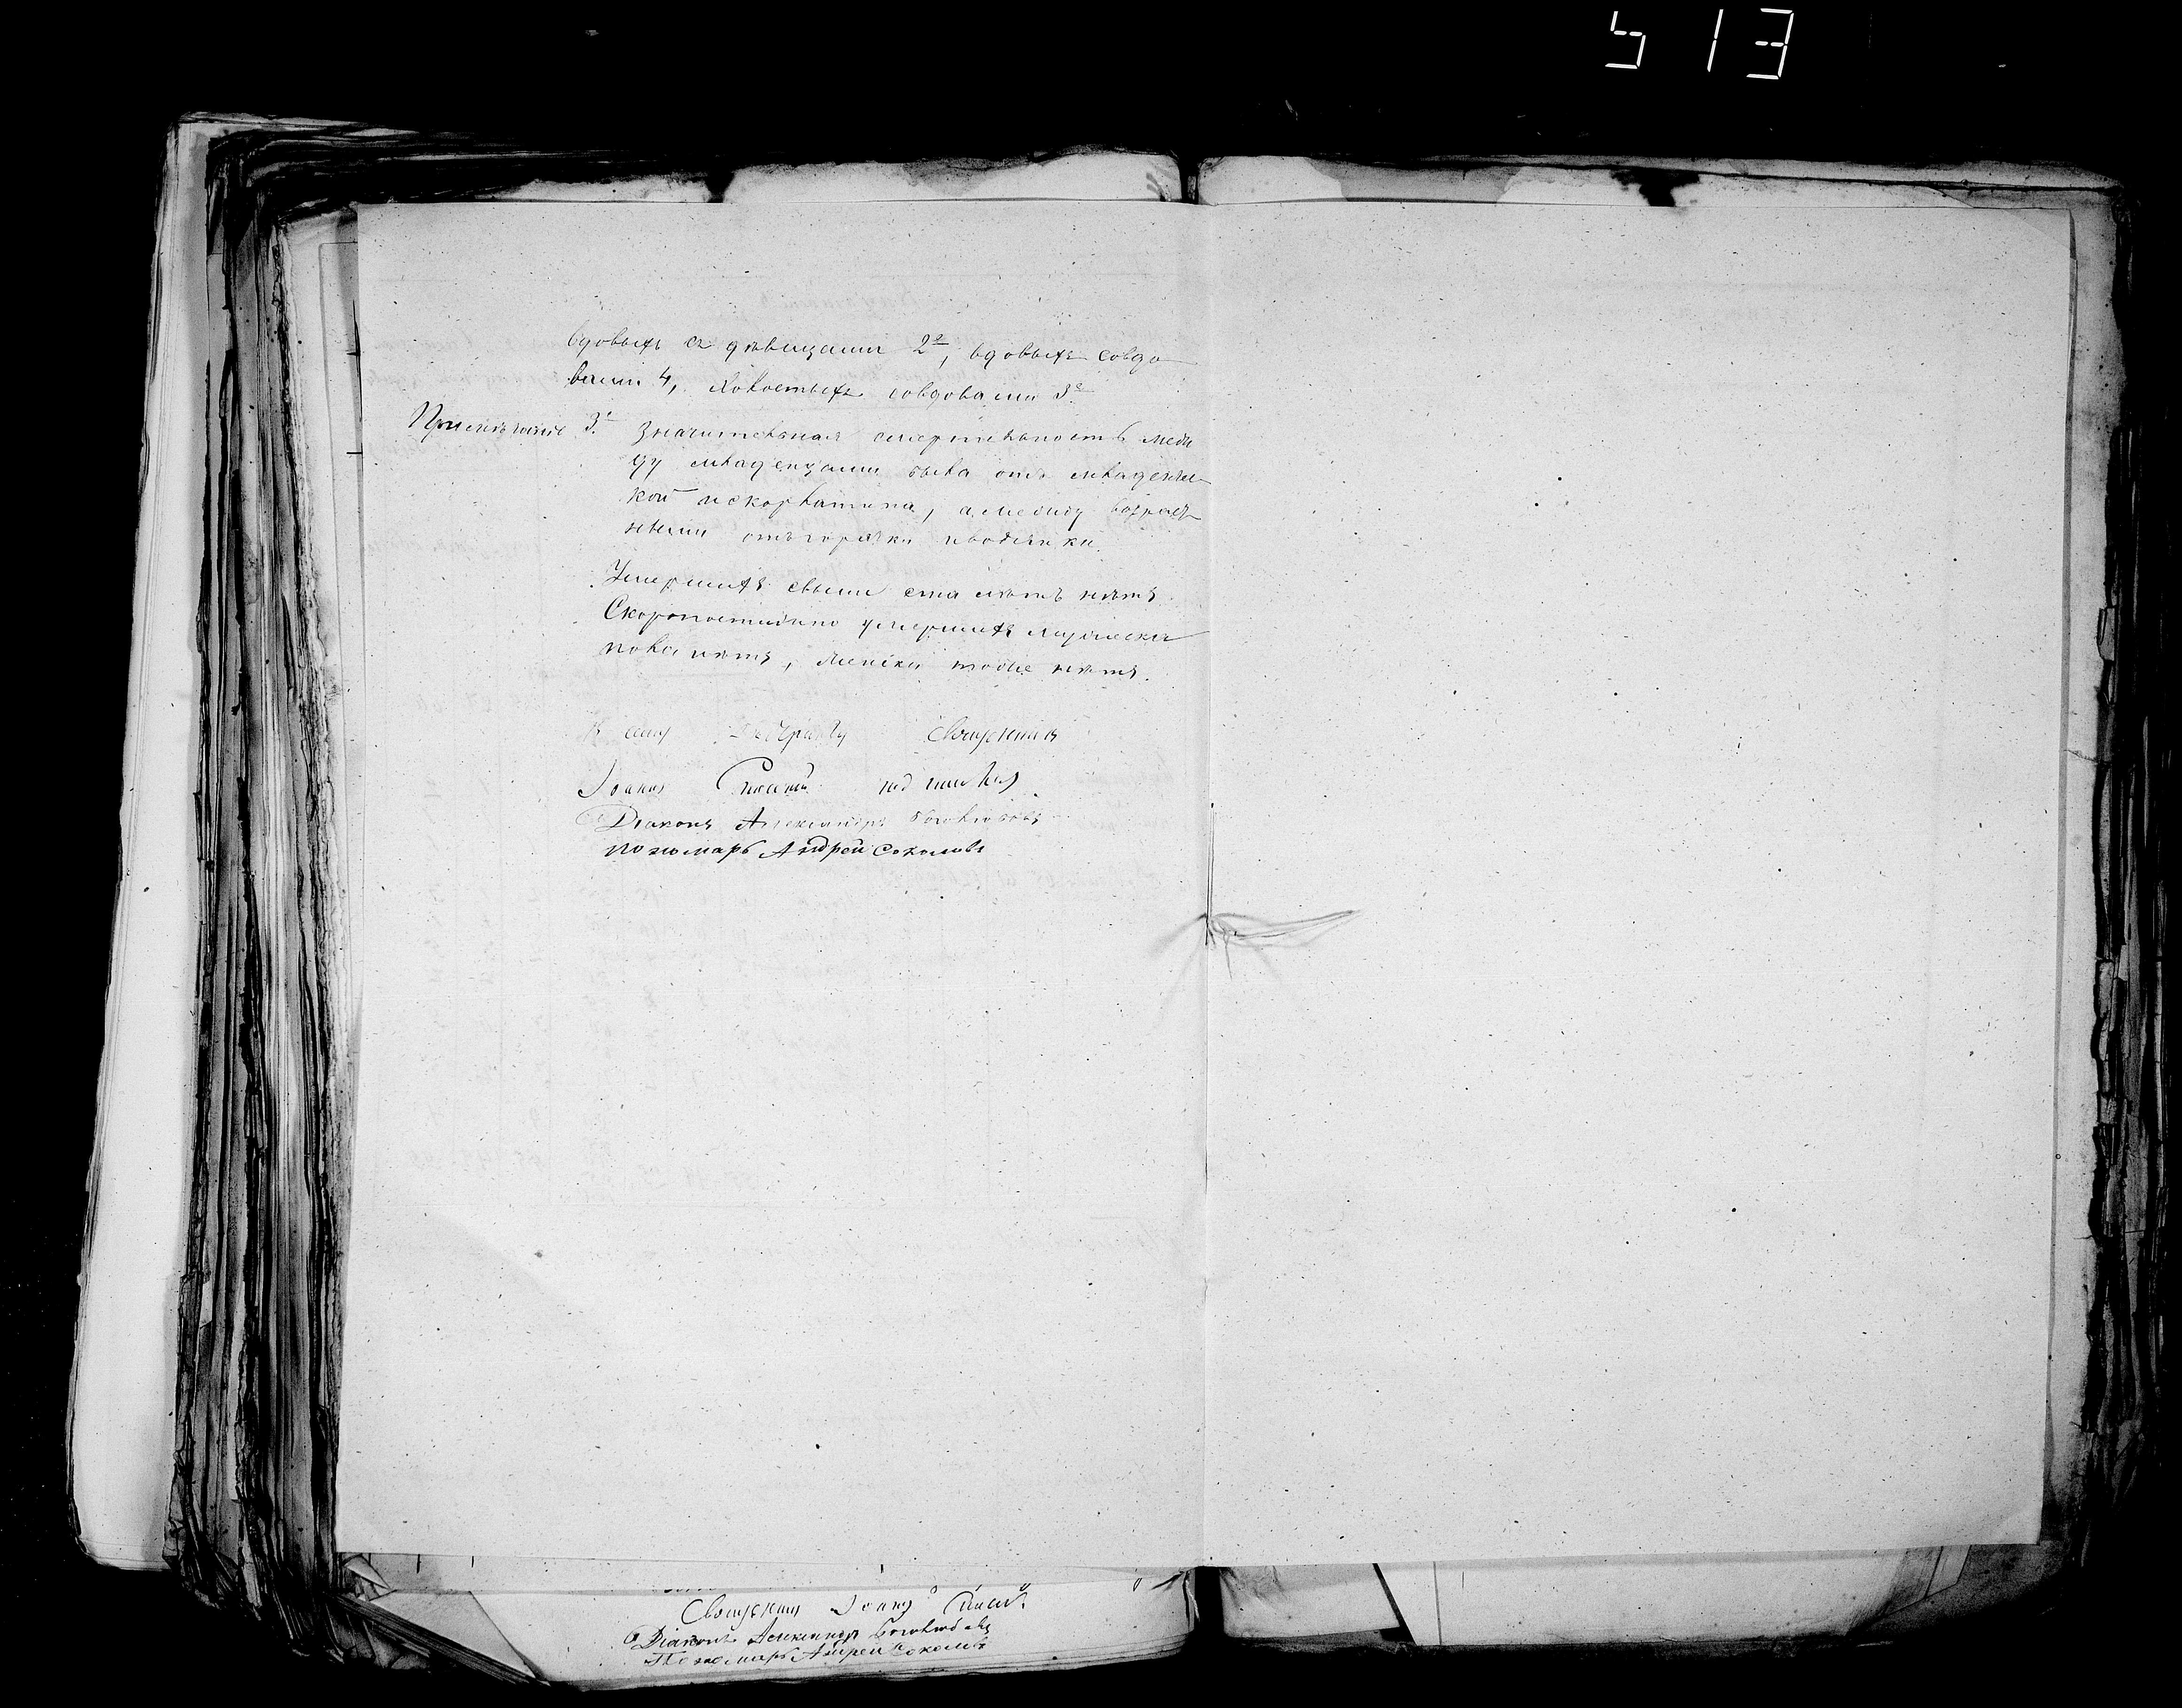 513
вдовыхъ съ дѣвицами 2е, вдовыхъ совдо
вами 4, холостыхъ совдовами 3е
Примѣчаніе 3е Значительная смертельность меж
ду младенцами была отъ младенче
кой искорлатина, амежду возраст
ными отъгорячки иводянки.
Умершихъ свыше ста лѣтъ нѣтъ.
Скоропостижно умершихъ мужеска
пола нѣтъ, женска тоже нѣтъ.
К сему Священникъ
Іоаннъ подписался
Діаконъ Александръ Боголюбовъ
пономарь Андрей Соколовъ
Священникъ Іоаннъ
Діаконъ Александръ Боголюбовъ
Пономарь Андрей Соколовъ